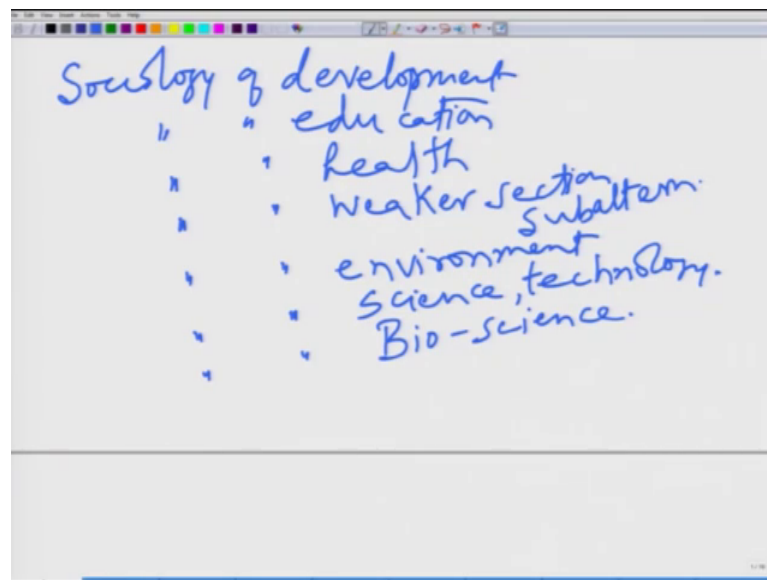 Sociology of development
" " education
" " health
" " weaker section
subaltern.
" " environment
" " science, technology.
" " Bio-science.